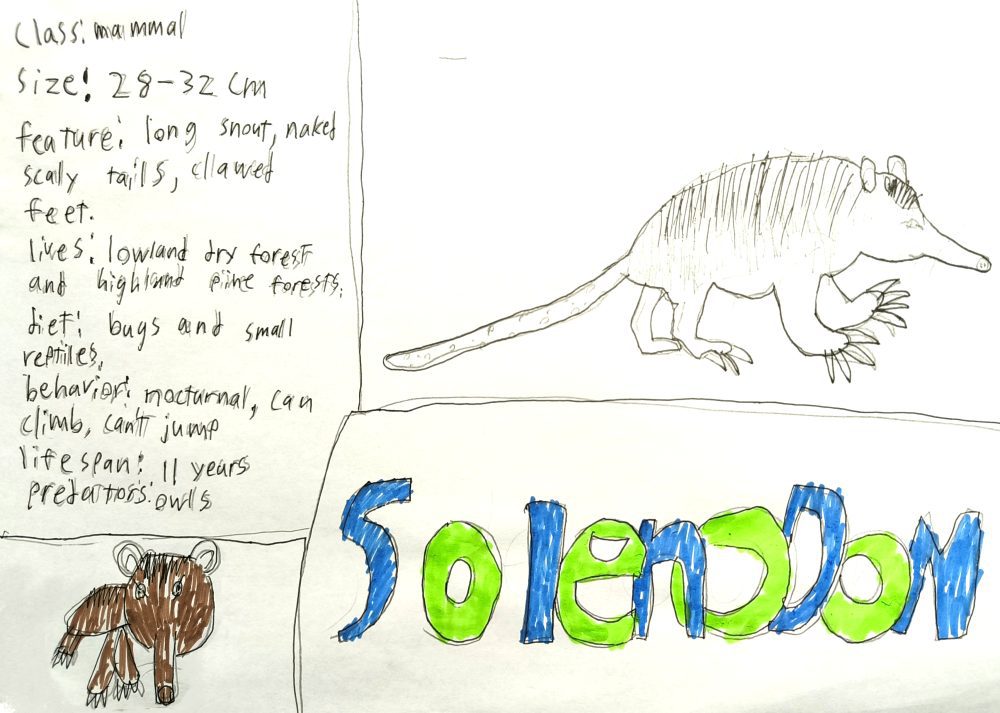 Class: mammal
size: 28-32 cm
feature: long snout, naked
scaly tails, clawed
feet.
lives: lowland dry forest
and highland pine forests.
diet: bugs and small
reptiles,
behavior: nocturnal, can
climb, can't jump
lifespan: 11 years
predators: owls
SolenoDoN